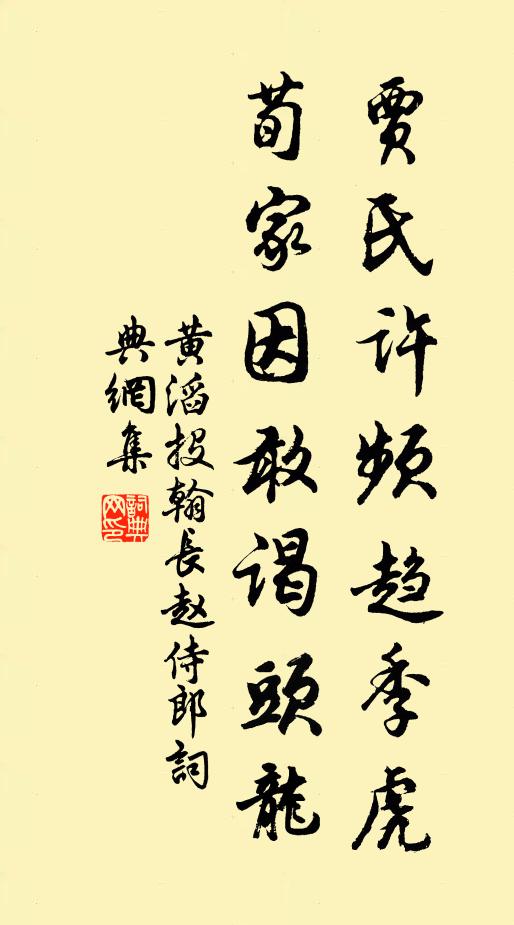 賈氏許頻趨季虎
荀家因敢謁頭龍
黃滔投翰長赵侍郎詞
典網集
詞典
网印